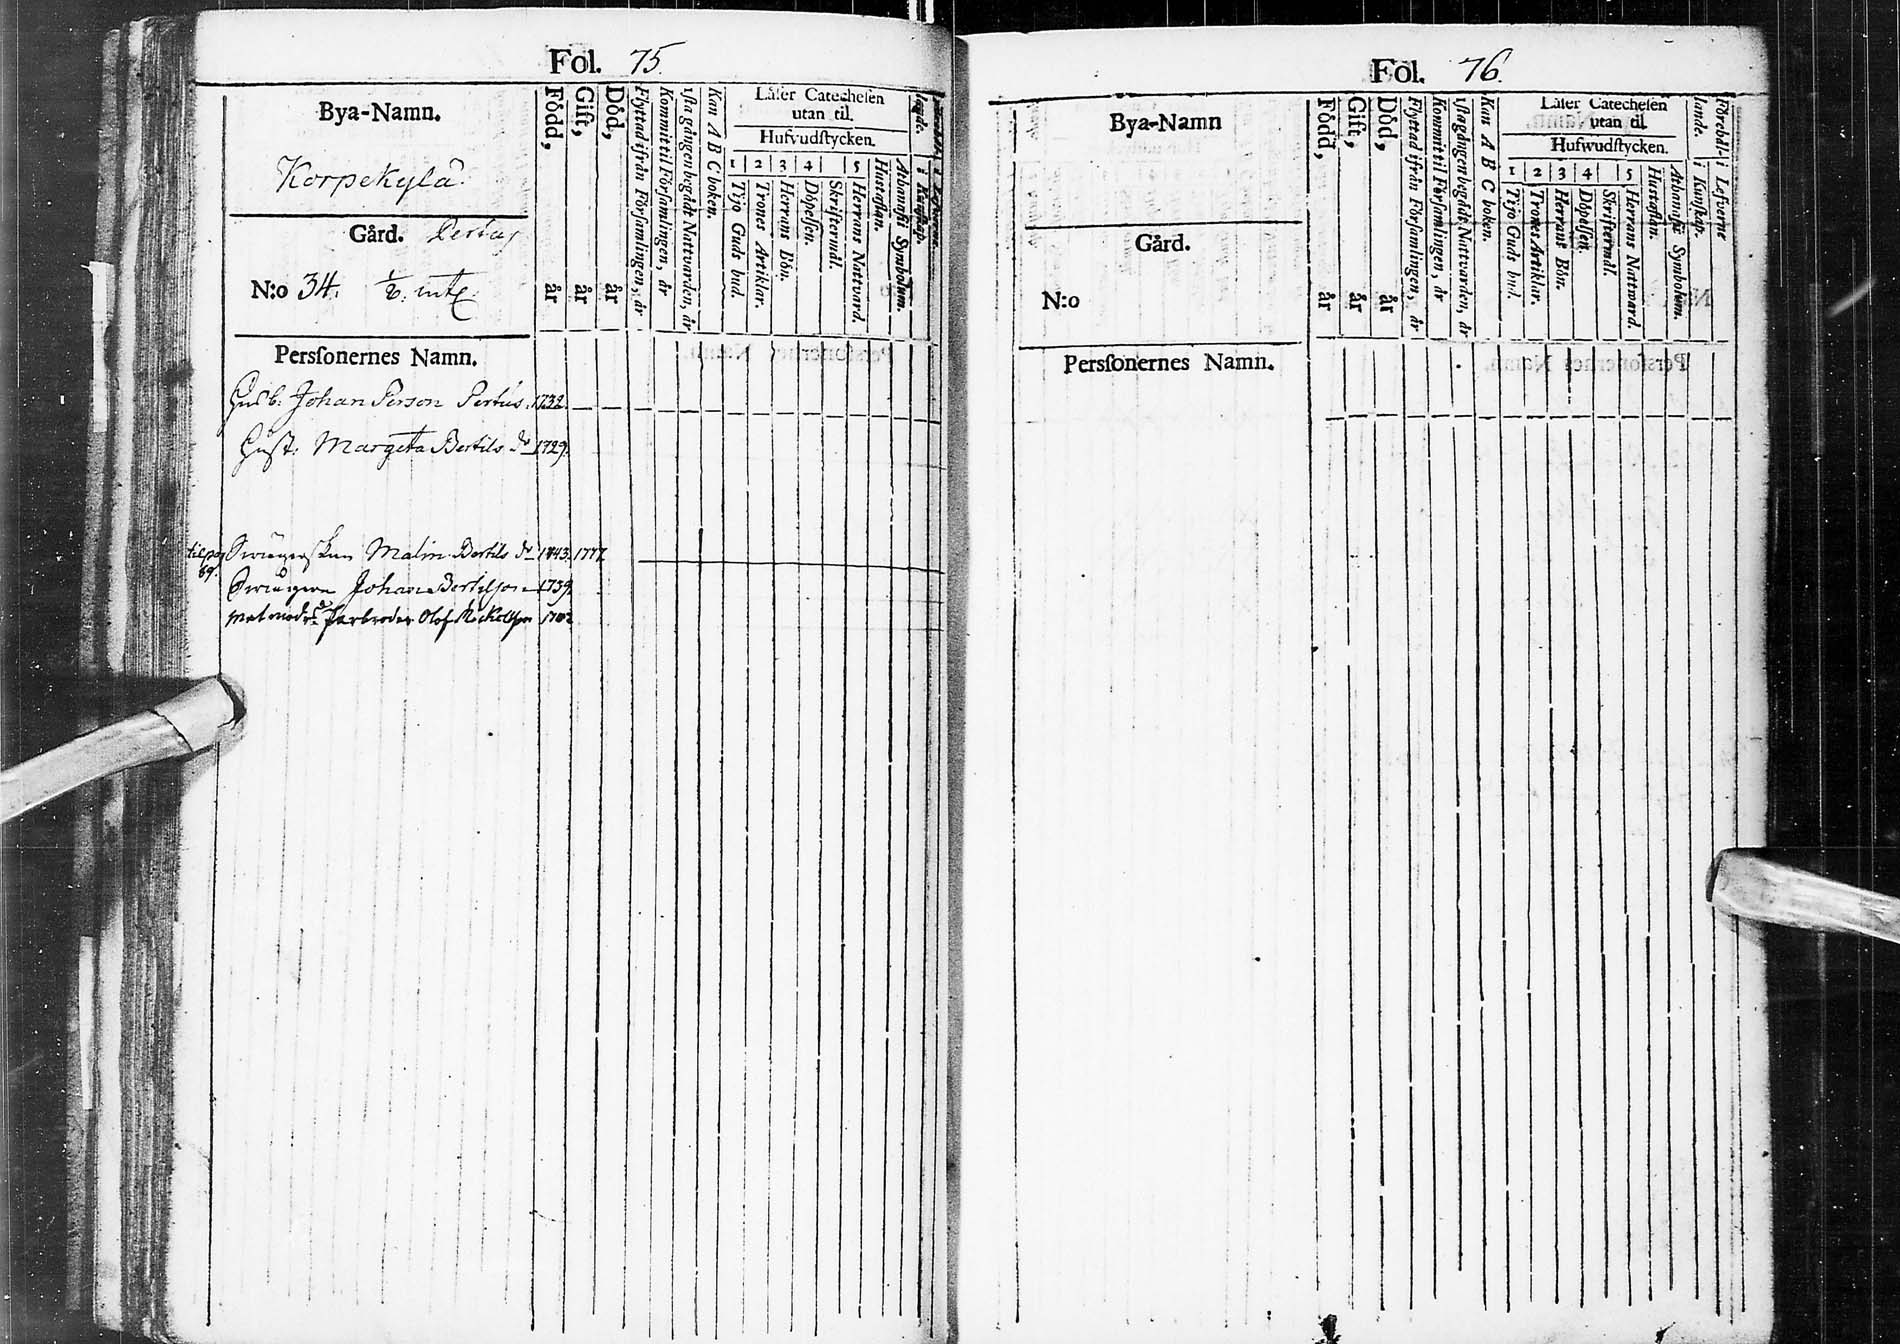 Fol. 75.
Bya-Namn.
Korpekylä.
Gård. Pertus
N:o 34. mtl.
Född, år
Gift, år
Död, år
Flyttad ifrån Församlingen, år
Kommit til Församlingen, år
1sta gången begådt Nattvarden, år
Kan A B C boken.
Läser Catechesen
utan til.
Hufvudstycken.
1 2 3 4 5
Tijo Guds bud.
Trones Artiklar.
Herrans Bön.
Döpelsen.
Skriftermål.
Herrans Nattvard.
Hustaflan.
Athanasii Symbolum.
i Kunskap.
Persſonernes Namn.
Husb. Johan Person Pertus. 1732.
Hust. Margeta Bertils dr 1729.
til pag 69. Swägerskan Malin Bertils dr 1743. 1777.
Swågern Johan Bertilson 1739.
Farbroder Olof Mickelson 1702
Fol. 76.
Bya-Namn
Gård.
N:o
Född, år
Gift, år
Död, år
Flyttad ifrån Församlingen, år
Kommit til Församlingen, år
1sta gången begådt Nattvarden, år
Kan A B C boken.
Läser Catechesen
utan til.
Hufwudstycken.
1 2 3 4 5
Tijo Guds bud.
Trones Artiklar.
Herrans Bön.
Döpelsen.
Skriftermål.
Herrans Nattward.
Hustaflan.
Athanasii Symbolum.
i Kunskap.
i Lefverne
Persſonernes Namn.